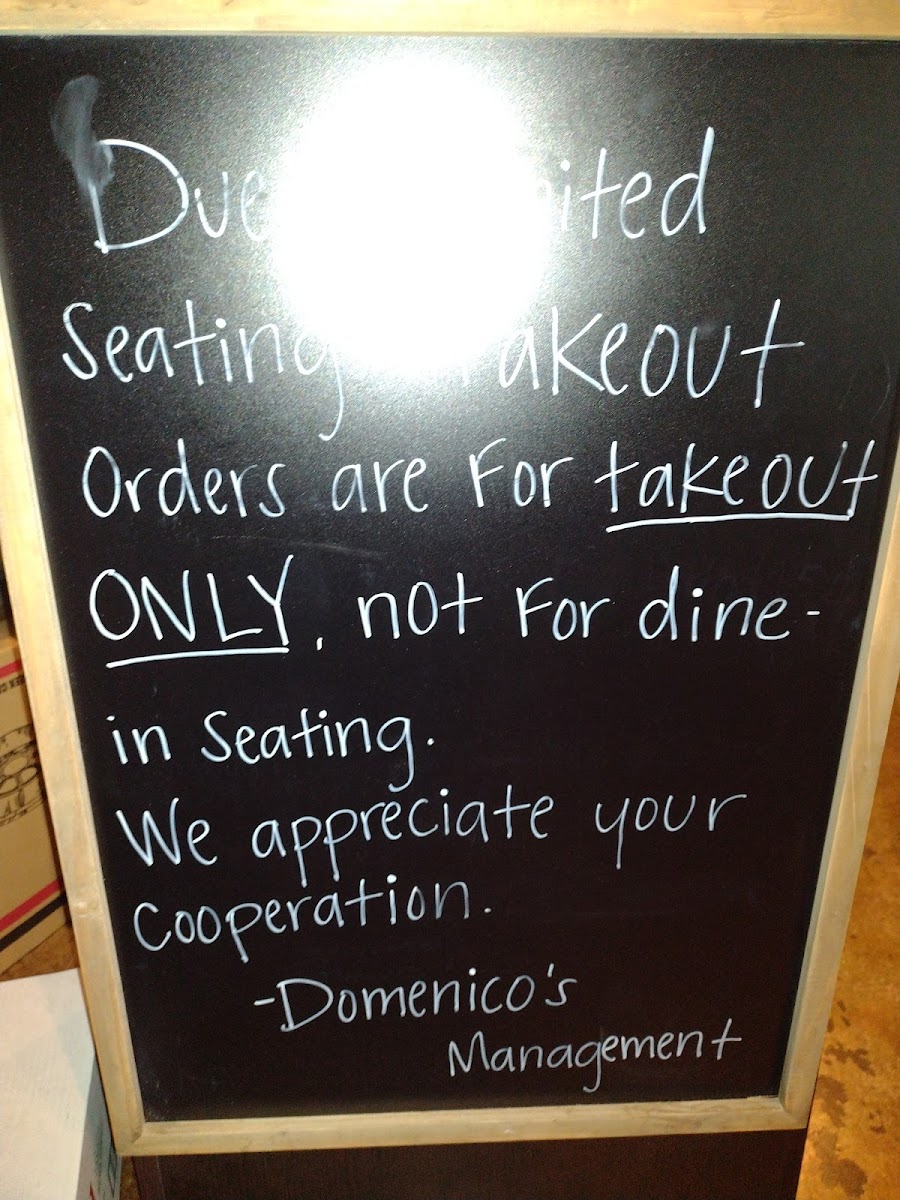 Due
Seating takeout
Orders are For takeout
ONLY, not For dine-
in Seating.
We appreciate your
Cooperation.
-Domenico's
Management